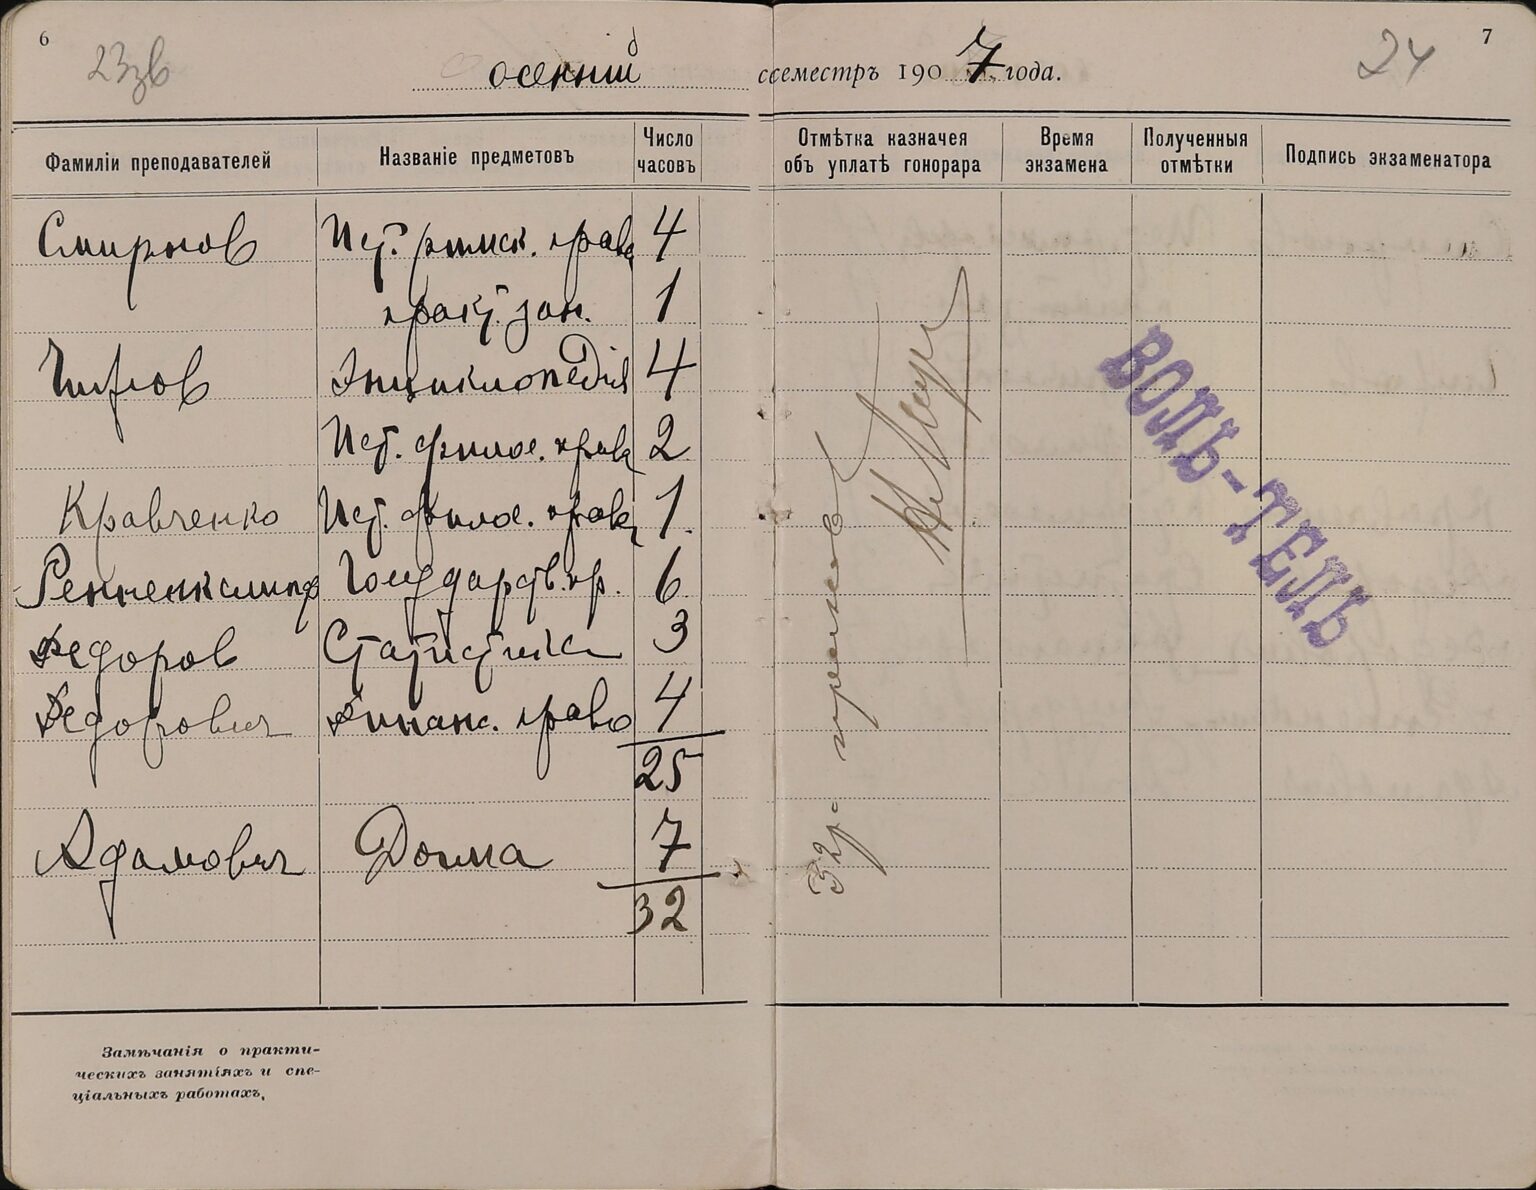 6
23зв
осенній семестръ 1907 года.
24
7
Фамиліи преподавателей Названіе предметовъ Число часовъ Отмѣтка казначея объ уплатѣ гонорара Время экзамена Полученныя отмѣтки Подпись экзаменатора
Смирнов Ист. римск. права 4
практ. зан. 1
Чижов Энциклопедія 4
Ист. филос. права 2
Кравченко Ист. филос. права 1
Ренненкампф Государств. пр. 6
Федоров Статистика 3
Федорович Финанс. право 4
25
Адамович Догма 7
32
32 р
ВОЛЬ-ТЕЛЬ
Замѣчанія о практи-
ческихъ занятіяхъ и спе-
ціальныхъ работахъ.